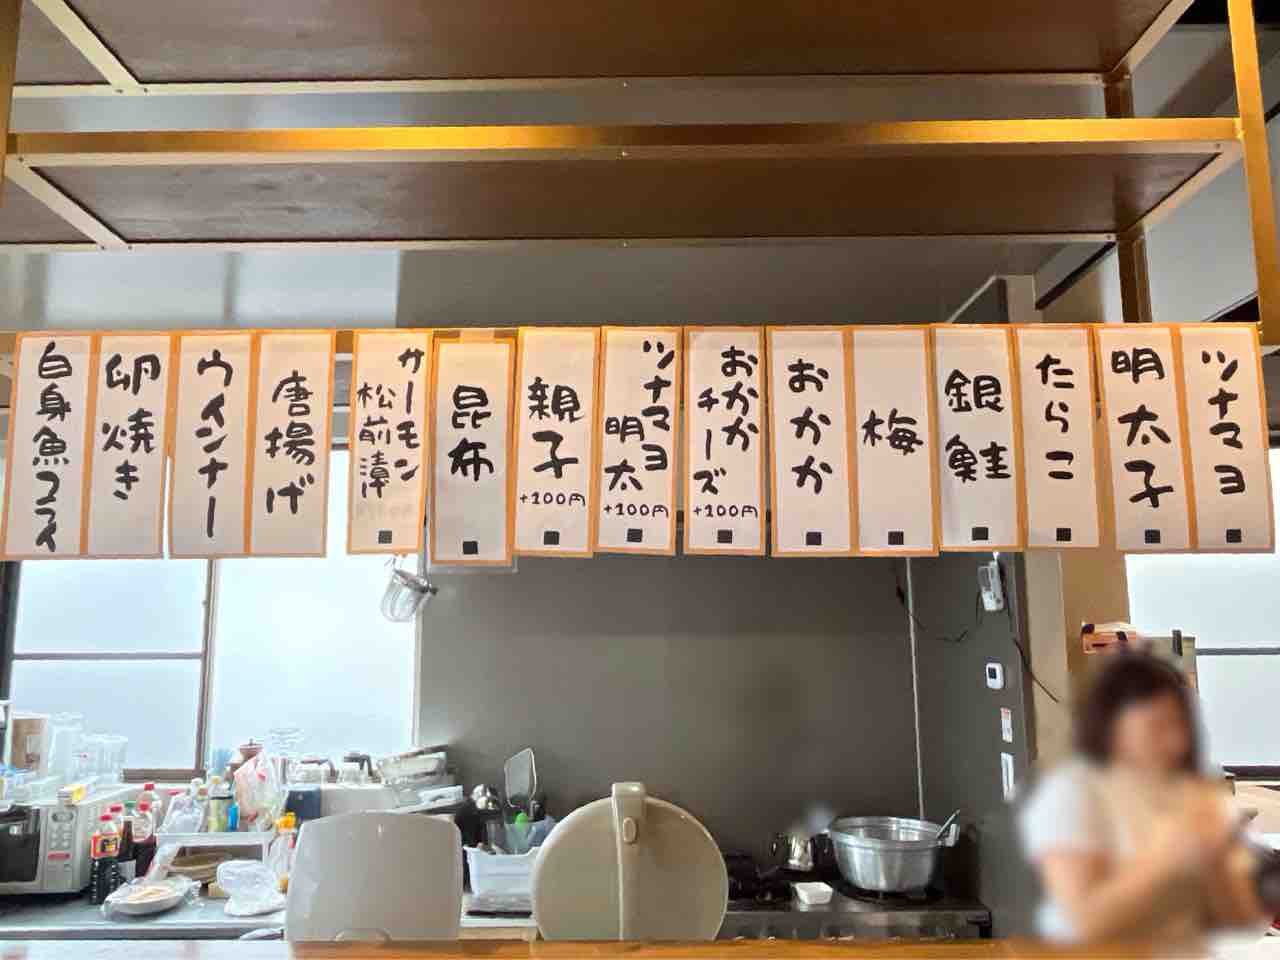 ツナマヨ
明太子
たらこ
銀鮭
梅
おかか
おかか
チーズ
+100円
ツナマヨ
明太
+100円
親子
+100円
昆布
サーモン
松前漬け
唐揚げ
ウインナー
卵焼き
白身魚フライ